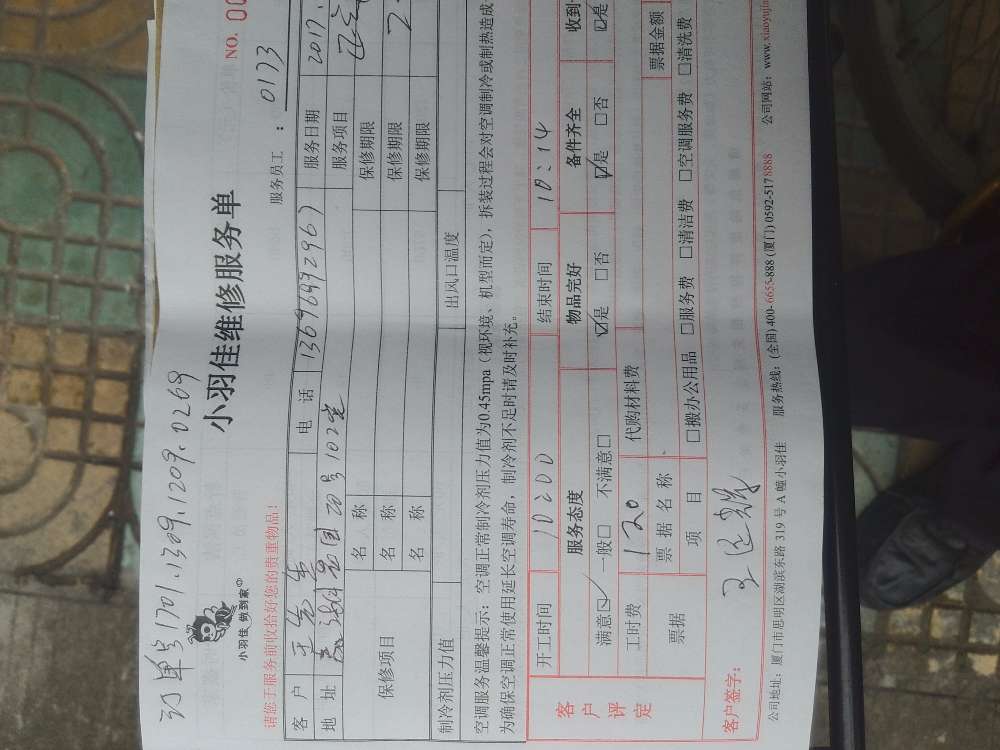 订单号1701.1309.1209.0269
小羽佳 做到家
小羽佳维修服务单
NO. 00
请您于服务前收拾好您的贵重物品!
服务员工：0173
客户 王先生 电话 13696992967 服务日期 2017.
地址 国 20号102室 服务项目
保修项目 名称 保修期限
名称 保修期限
名称 保修期限
制冷剂压力值 出风口温度
空调服务温馨提示：空调正常制冷剂压力值为0.45mpa（视环境、机型而定），拆装过程会对空调制冷或制热造成
为确保空调正常使用延长空调寿命，制冷剂不足时请及时补充。
客户评定
开工时间 10:00 结束时间 10:14
服务态度 物品完好 备件齐全 收到
满意☑ 一般□ 不满意□ ☑是 □否 ☑是 □否 ☑是
工时费 120 代购材料费
票据 票据名称 票据金额
项目 □搬办公用品 □服务费 □清洁费 □空调服务费 □清洗费
客户签字：
公司地址：厦门市思明区湖滨东路 319 号 A 幢小羽佳 服务热线：(全国) 400-6655-888 (厦门) 0592-5178888 公司网站：www.xiaoyujia